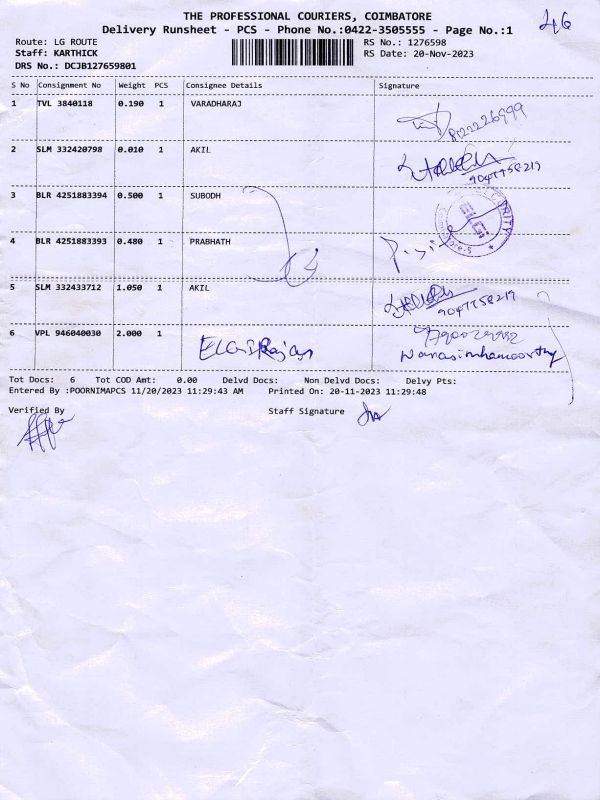 THE PROFESSIONAL COURIERS, COIMBATORE
Delivery Runsheet - PCS - Phone No.:0422-3505555 - Page No.:1
Route: LG ROUTE RS No.: 1276598
Staff: KARTHICK RS Date: 20-Nov-2023
DRS No.: DCJB127659801
S No Consignment No Weight PCS Consignee Details Signature
1 TVL 3840118 0.190 1 VARADHARAJ
2 SLM 332420798 0.010 1 AKIL
9047758219
3 BLR 4251883394 0.500 1 SUBODH
4 BLR 4251883393 0.480 1 PRABHATH
5 SLM 332433712 1.050 1 AKIL
9047758219
6 VPL 946040030 2.000 1
Narasimhamoorthy
Tot Docs: 6 Tot COD Amt: 0.00 Delvd Docs: Non Delvd Docs: Delvy Pts:
Entered By :POORNIMAPCS 11/20/2023 11:29:43 AM Printed On: 20-11-2023 11:29:48
Verified By Staff Signature